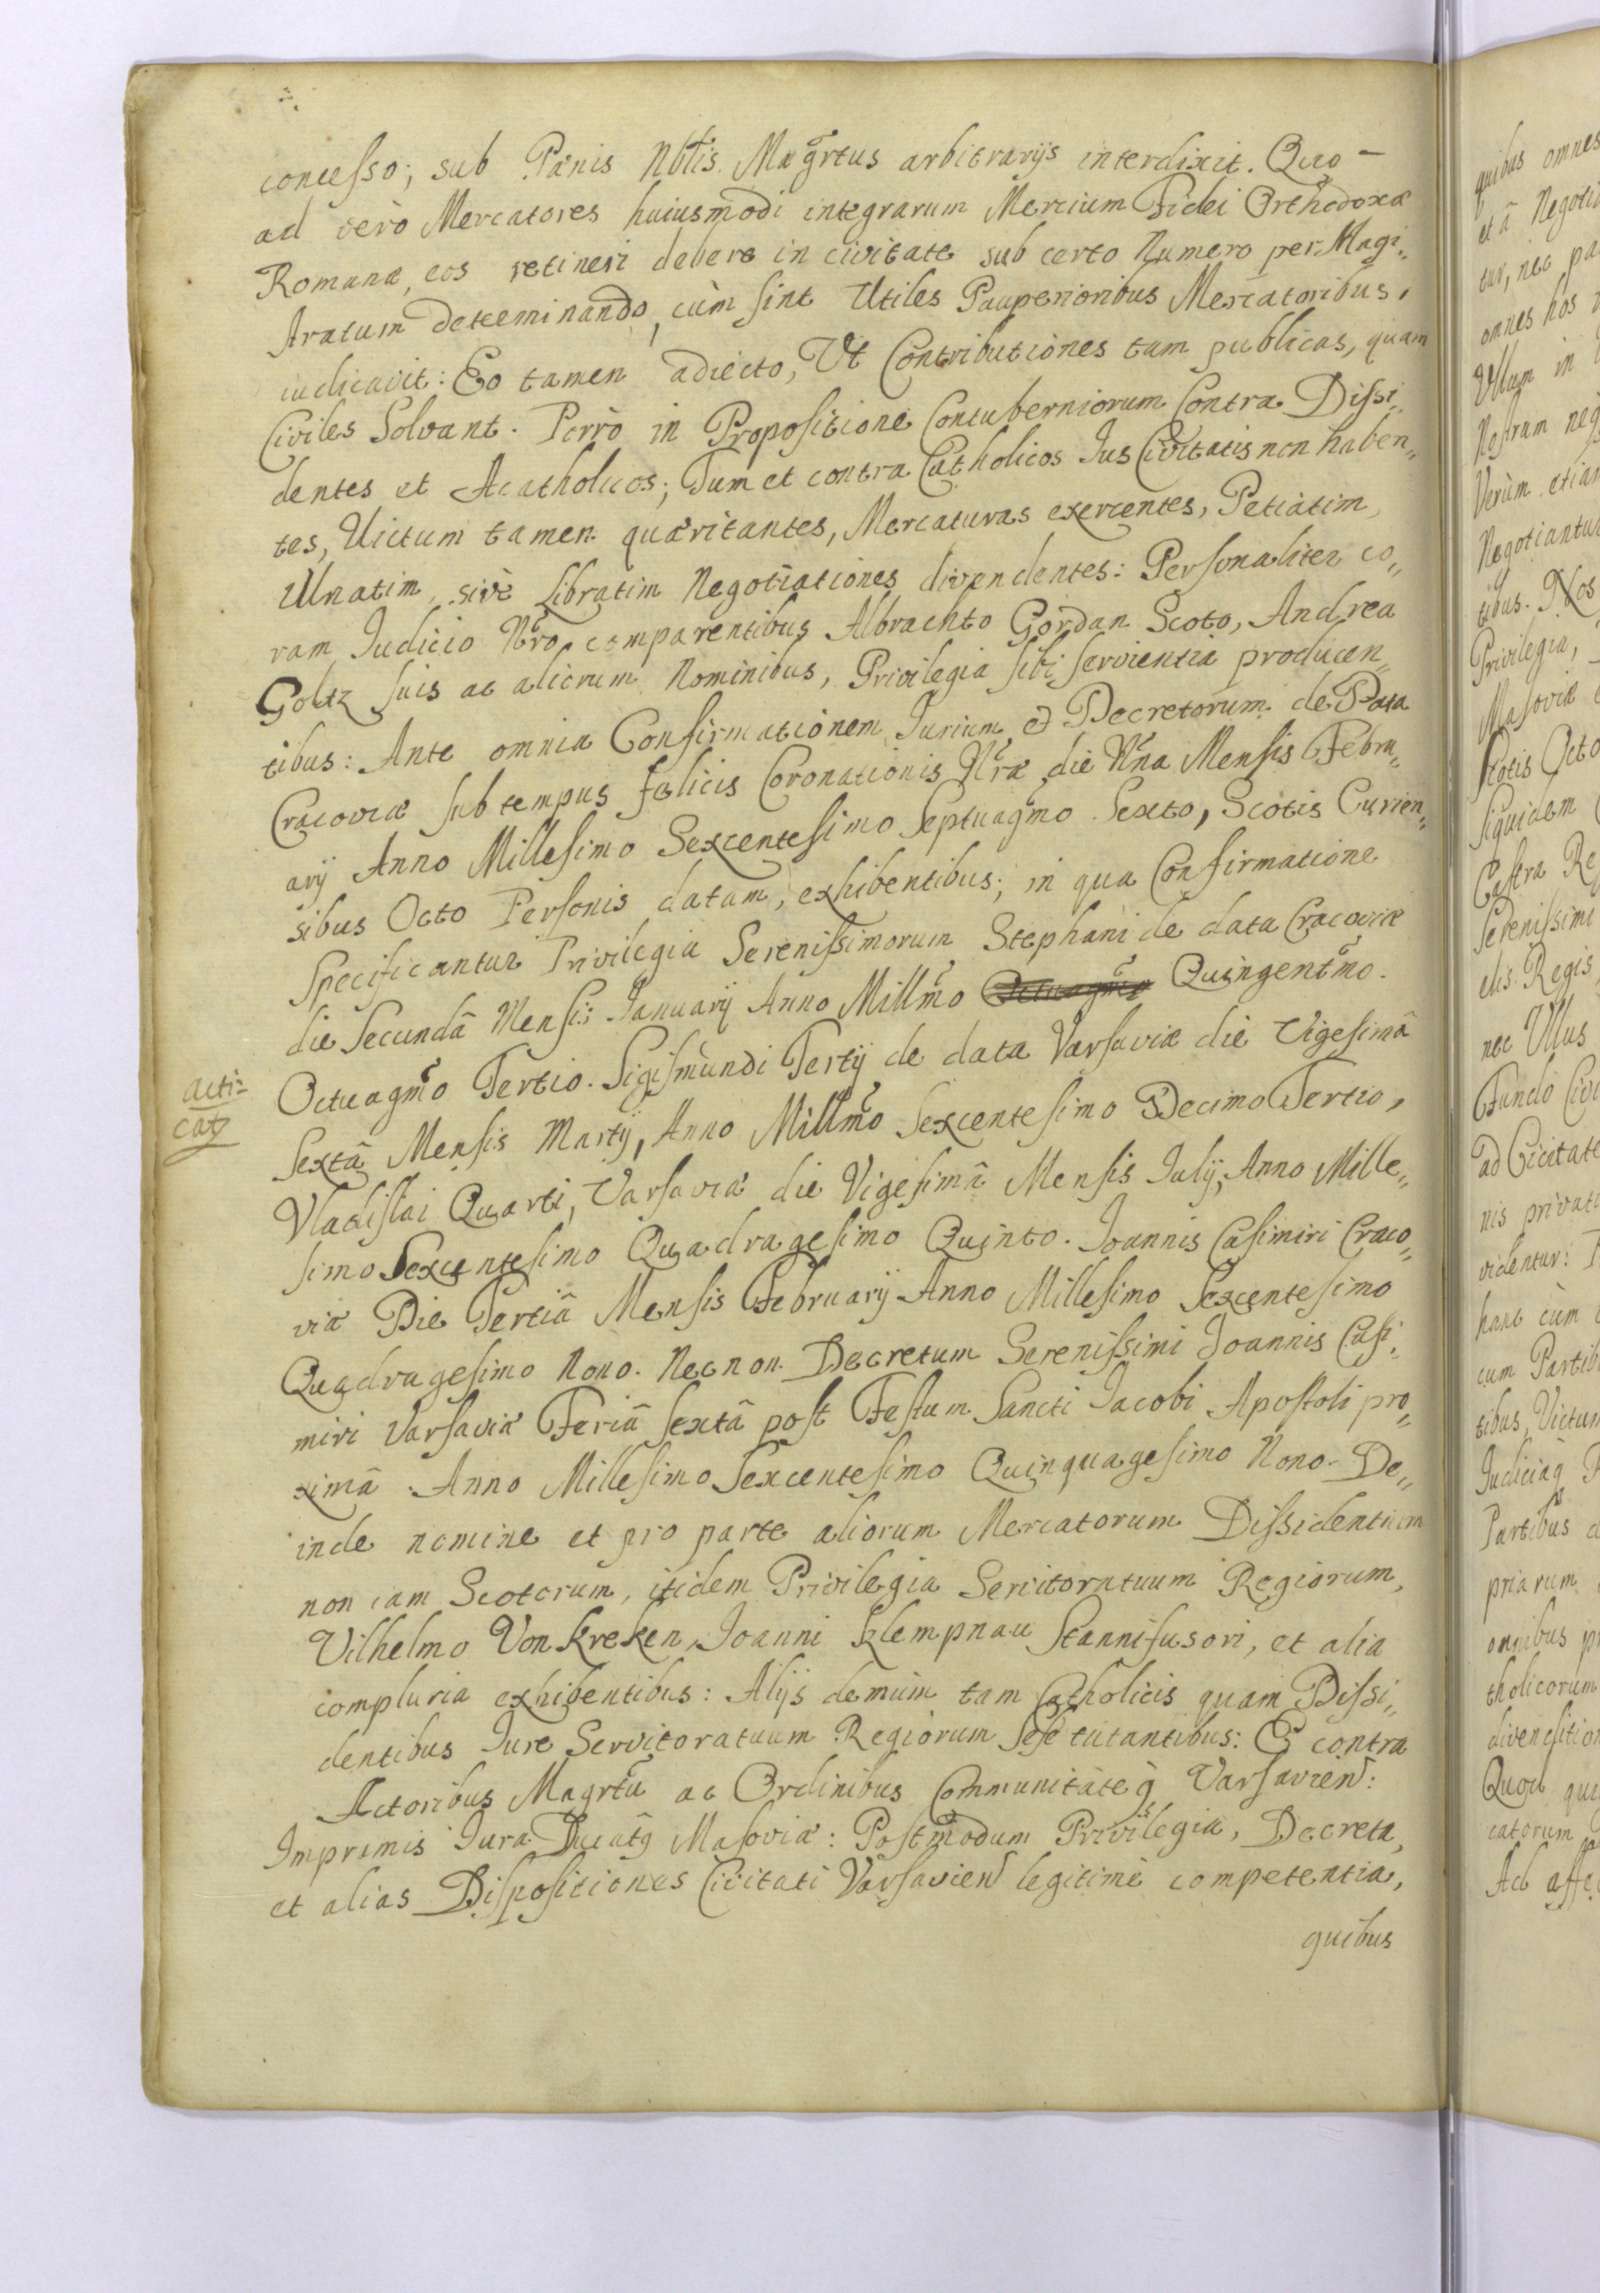 concesso; sub Pænis Nbłis Magrtus arbitrarijs interdixit. Quo-
ad verò Mercatores huiusmodi integrarum Mercium Fidei Orthodoxæ
Romanæ, eos retineri debere in civitate sub certo Numero per Magi,,
stratum determinando, cùm sint Utiles Pauperioribus Mercatoribus,
iudicavit: Eo tamen adiecto, Vt Contributiones tam publicas, quam
Civiles Solvant. Porrò in Propositione Contuberniorum Contra Dissi,,
dentes et Acatholicos; Tum et contra Catholicos Ius Civitatis non haben,,
tes, Uictum tamen quæritantes, Mercaturas exercentes, Petiatim,
Ulnatim, sivè Libratim Negotiationes divendentes: Personaliter co,,
ram Iudicio Nro comparentibus Albrachto Gordan Scoto, Andrea
Goltz suis ac aliorum Nominibus, Privilegia sibi servientia producen,,
tibus: Ante omnia Confirmationem Iurium et Decretorum de Data
Cracoviæ sub tempus felicis Coronationis Nræ die Nna Mensis Febru,,
arij Anno Millesimo Sexcentesimo Septuagmo Sexto, Scotis Curien,,
sibus Octo Personis datam, exhibentibus; in qua Confirmatione
Specificantur Privilegia Serenissimorum Stephani de data Cracoviæ
die Secundâ Mensis Ianuarij Anno Millmo Quingentmo.
Octuagmo Tertio. Sigismundi Tertij de data Varsaviæ die Vigesimâ
acti=
cat
Sextâ Mensis Martij, Anno Millmo Sexcentesimo Decimo Tertio,
Vladislai Quarti, Varsaviæ die Vigesimâ Mensis Iulij, Anno Mille,,
simo Sexcentesimo Quadragesimo Quinto. Ioannis Casimiri Craco,,
viæ Die Tertiâ Mensis Februarij Anno Millesimo Sexcentesimo
Quadragesimo Nono. Necnon Decretum Serenissimi Ioannis Casi,,
miri Varsaviæ Feriâ Sextâ post Festum Sancti Iacobi Apostoli pro,,
ximâ Anno Millesimo Sexcentesimo Quinquagesimo Nono. De,,
inde nomine et pro parte aliorum Mercatorum Dissidentium
non iam Scotorum, itidem Privilegia Servitoratuum Regiorum,
Vilhelmo Von kreken, Ioanni klempnau Stannifusori, et alia
compluria exhibentibus: Alijs demùm tam Catholicis quam Dissi,,
dentibus Iure Servitoratuum Regiorum Sese tutantibus: E contra
Actoribus Magrtu ac Ordinibus Communitateq Varsavien:
Imprimis Iura Ducatq Masoviæ: Postmodum Privilegia, Decreta,
et alias Dispositiones Civitati Varsavien legitimè competentia,
quibus
quibus omnes
et â Negoti
tur, nec pa
omnes hos
Ullum in
Nostram neg
Verùm etiam
Negotiantur
tibus. Nos
Privilegia,
Masoviæ
Scotis Octo
Siquidem
Castra Re
Serenissimi
elis Regis,
nec Ullus
Fundo Civi
ad Civitate
nis privati
videntur:
hanc cùm
cum Partib
tibus, Victum
Iudiciaq
Partibus
priarum
omnibus pr
tholicorum
divenditior
Quod qui
catorum
Ad affe